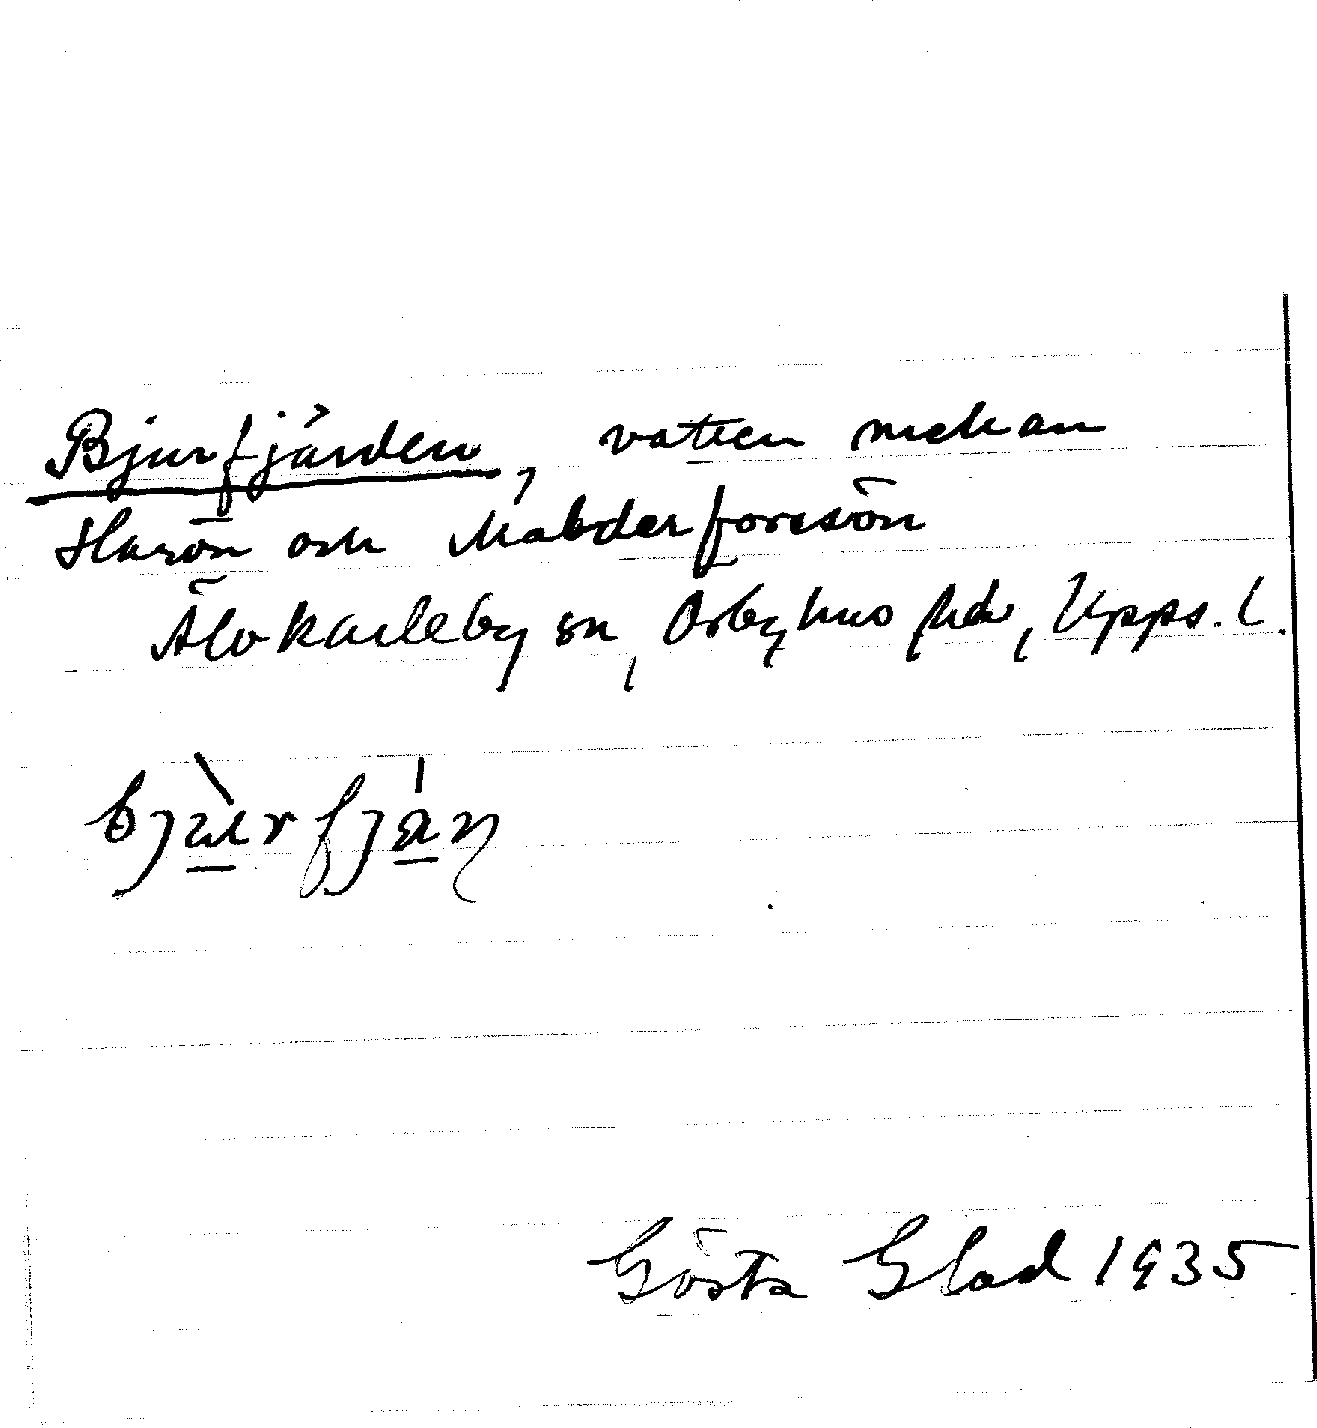 Bjurfjärden, vatten mellan
Harön och Mabderforssön
Älvkarleby sn, Örbyhus hd, Upps. l.
bjùrfján
Gösta Glad 1935